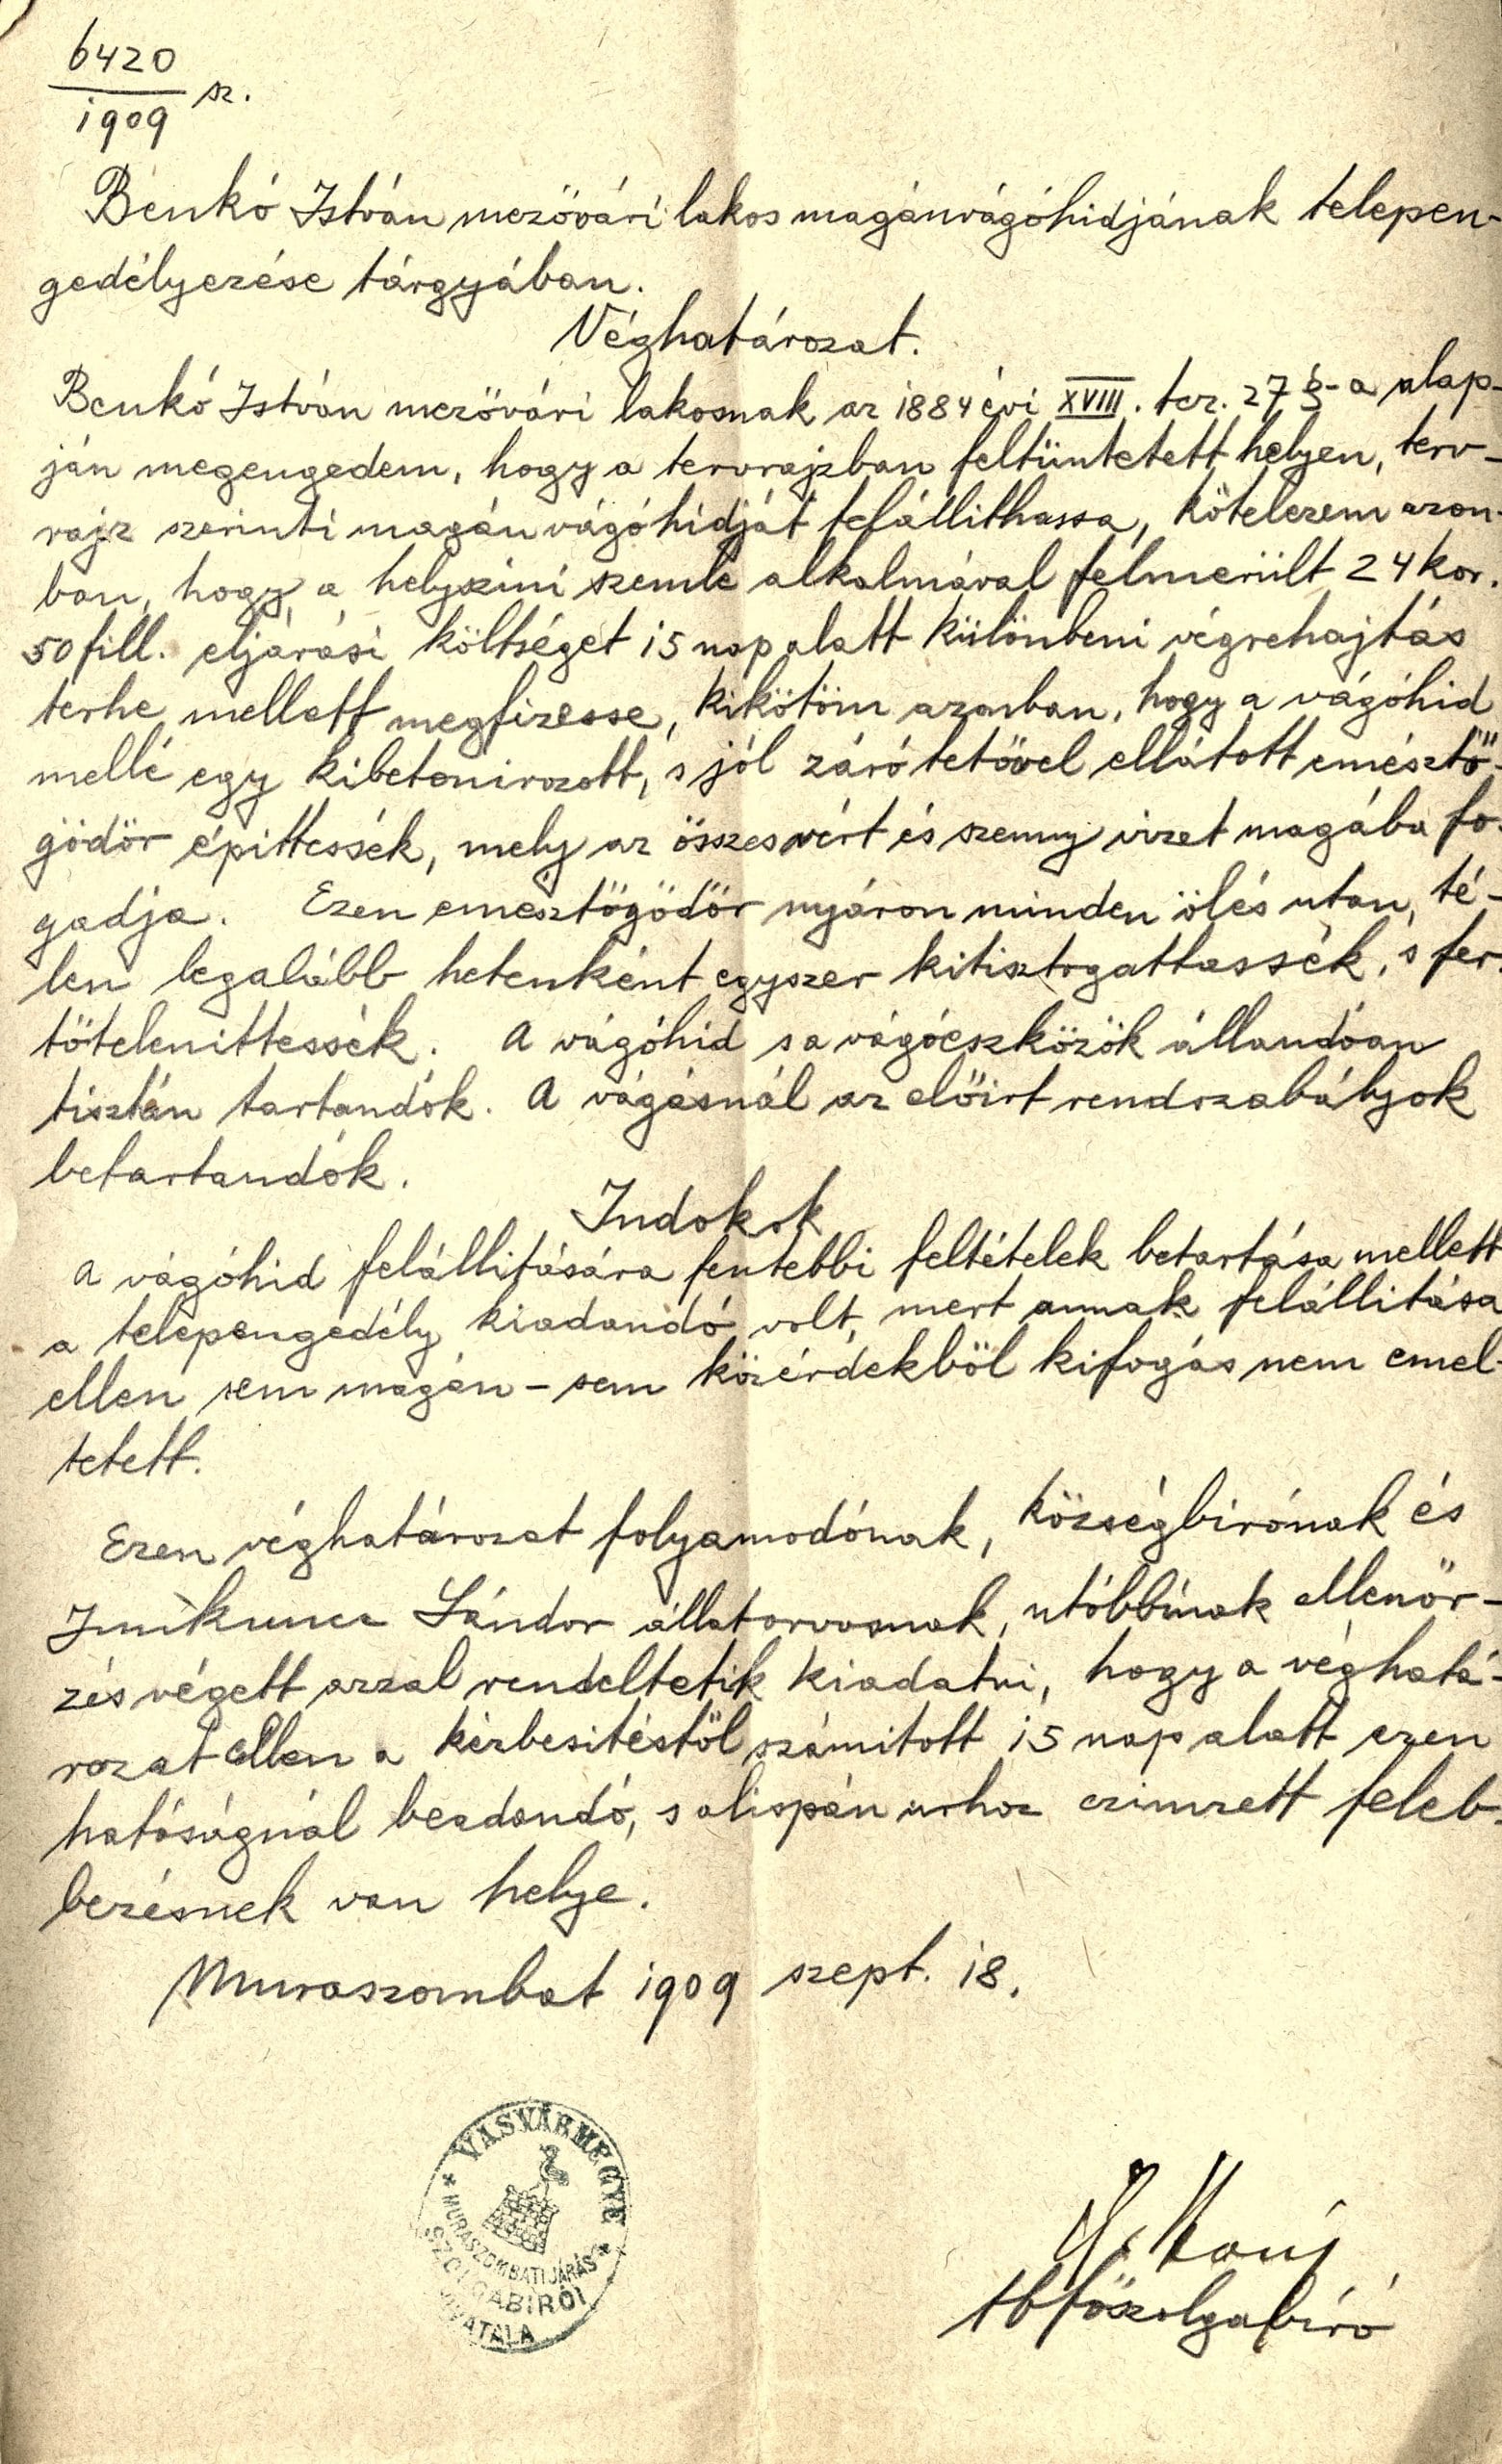 6420
1909 sz.
Benkó István mezövári lakos magánvágóhidjának telepen-
gedélyezése tárgyában.
Véghatározat.
Benkó István mezövári lakosnak az 1884 évi XVIII. tcz. 27 §-a alap-
ján megengedem, hogy a tervrajzban feltüntetett helyen, terv-
rajz szerinti magánvágóhidját felállithassa, kötelezem azon-
ban, hogy a helyszini szemle alkalmával felmerült 24 kor.
50 fill. eljárási költséget 15 nap alatt különbeni végrehajtás
terhe mellett megfizesse, kikötöm azonban, hogy a vágóhid
mellé egy kibetonirozott, s jól záró tetövel ellátott emésztö-
gödör épittessék, mely az összes vért és szenny vizet magába fo-
gadja. Ezen emesztögödör nyáron minden ölés utan, té-
len legalább hetenként egyszer kitisztogattassék, s fer-
tötelenittessék. A vágóhid s a vágóeszközök állandóan
tisztán tartandók. A vágásnál az elöirt rendszabályok
betartandók.
Indokok
A vágóhid felállitására fentebbi feltételek betartása mellett
a telepengedély kiadandó volt, mert annak felállitása
ellen sem magán- sem közérdekböl kifogás nem emel-
tetett.
Ezen véghatározat folyamodónak, községbirónak és
Sándor állatorvosnak, utóbbinak ellenör-
zés végett azzal rendeltetik kiadatni, hogy a véghatá-
rozat ellen a kézbesitéstöl számitott 15 nap alatt ezen
hatóságnál beadandó, s alispán urhoz czimzett feleb-
bezésnek van helye.
Muraszombat 1909 szept. 18.
* VASVÁRMEGYE *
MURASZOMBATI JÁRÁS
SZOLGABIRÓI
HIVATALA
tb föszolgabíró